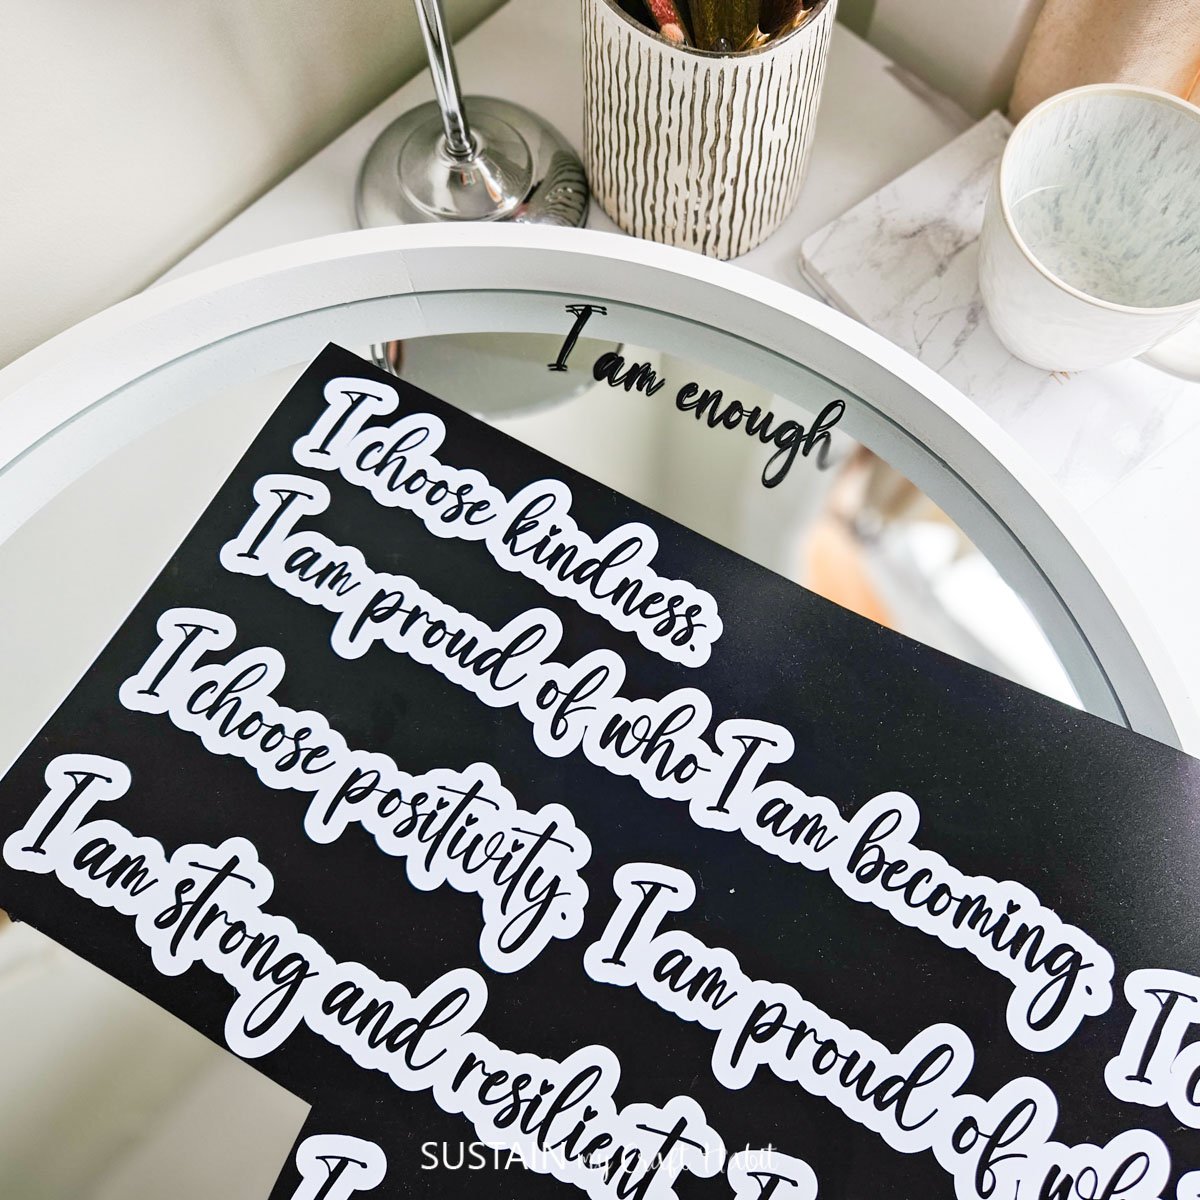 I am enough
I choose kindness.
I am proud of who I am becoming.
I choose positivity.
I am proud of
I am strong and resilient
I
SUSTAIN my Craft Habit